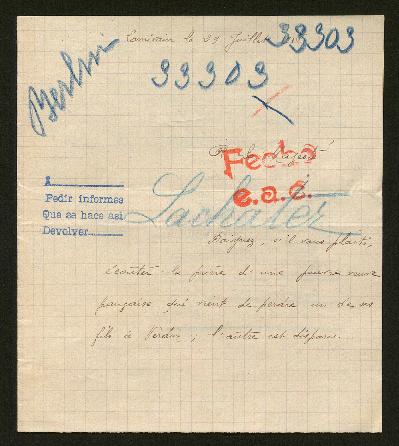 le 29 Juillet
33303
33303
Berlin
Sa Majesté
Fecho
e.a.c.
A
Pedir informes
Que se hace así
Devolver
Lachater
Daignez, s'il vous plaît,
écouter la prière d'une pauvre veuve
française qui vient de perdre un de ses
fils à Verdun ; l'autre est disparu.